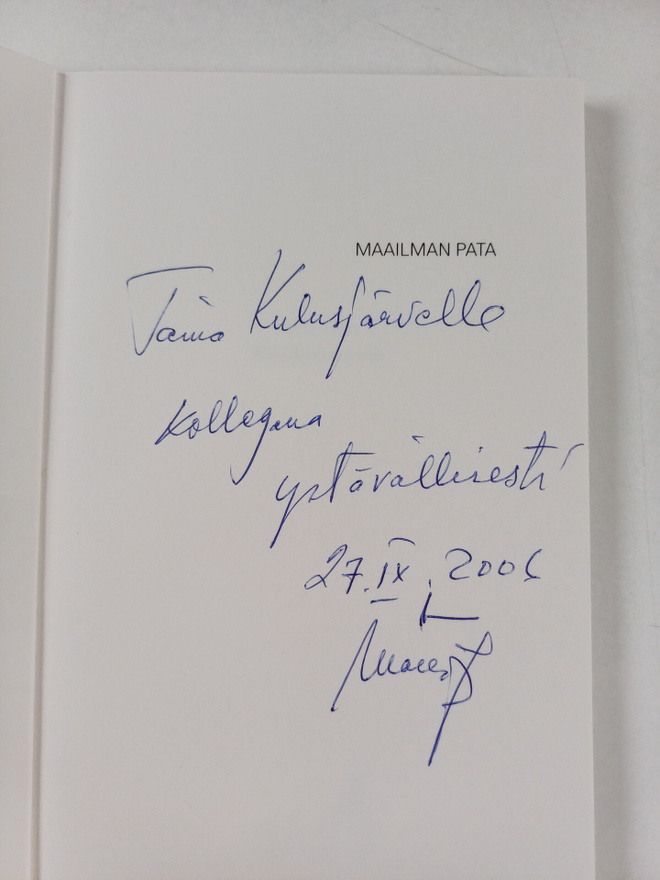 MAAILMAN PATA
Taina Kulusjärvelle
Kollegana
ystävällisesti
27.IX.2006